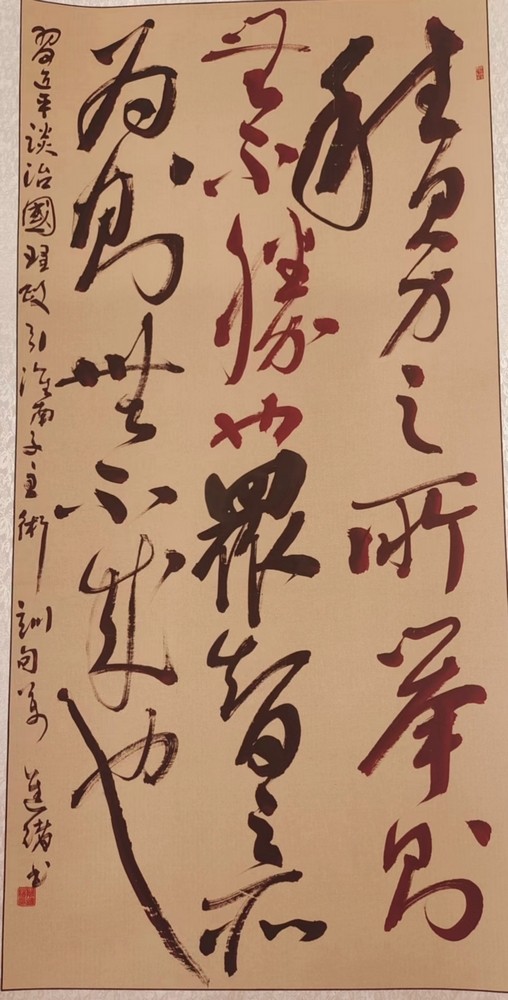 積力之所举则
無不勝也眾智之所
为则無不成也
習近平談治國理政引淮南子主術訓句 進緒书